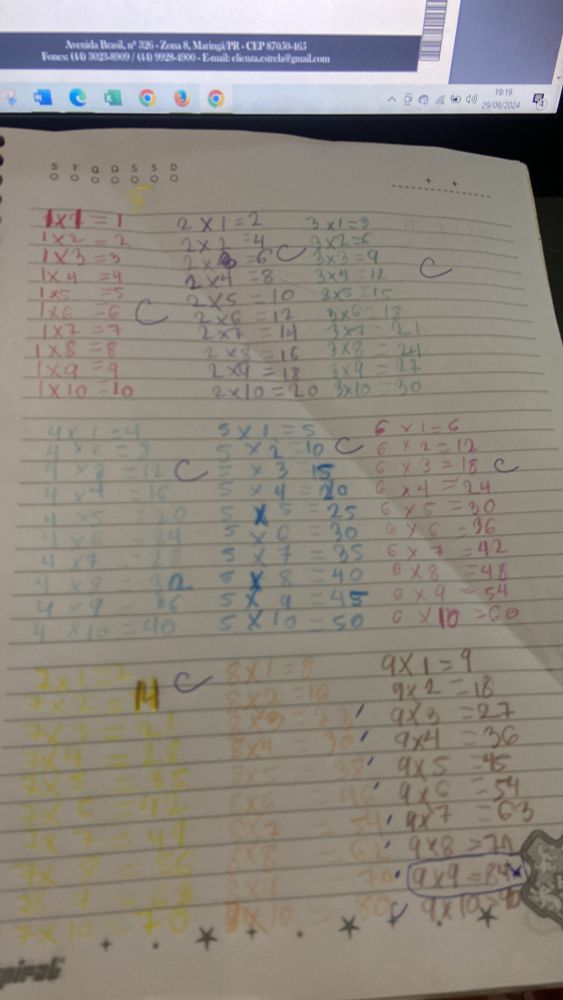 Avenida Brasil, nº 326 - Zona 8, Maringá/PR - CEP 87050-465
Fones: (44) 3023-8909 / (44) 9928-4900 - E-mail: clienza.estrela@gmail.com
19:19
29/09/2024
S T Q Q S S D
1x1=1
1x2=2
1x3=3
1x4=4
1x5=5
1x6=6
1x7=7
1x8=8
1x9=9
1x10=10
C
2x1=2
2x2=4
2x3=6
2x4=8
2x5=10
2x6=12
2x7=14
2x8=16
2x9=18
2x10=20
C
3x1=3
3x2=6
3x3=9
3x4=12
3x5=15
3x6=18
3x7=21
3x8=24
3x9=27
3x10=30
C
4x1=4
4x2=8
4x3=12
4x4=16
4x5=20
4x6=24
4x7=28
4x8=32
4x9=36
4x10=40
C
5x1=5
5x2=10
5x3 15
5x4=20
5x5=25
5x6=30
5x7=35
5x8=40
5x9=45
5x10=50
C
6x1=6
6x2=12
6x3=18
6x4=24
6x5=30
6x6=36
6x7=42
6x8=48
6x9=54
6x10=60
C
7x1=7
7x2=14
7x3=21
7x4=28
7x5=35
7x6=42
7x7=49
7x8=56
7x9=63
7x10=70
C
8x1=8
8x2=16
8x4=30
8x5=38
8x6=46
8x7=54
8x8=62
8x9 70
8x10=80
9x1=9
9x2=18
9x3=27
9x4=36
9x5=45
9x6=54
9x7=63
9x8=72
9x9=84
9x10=90
spiral